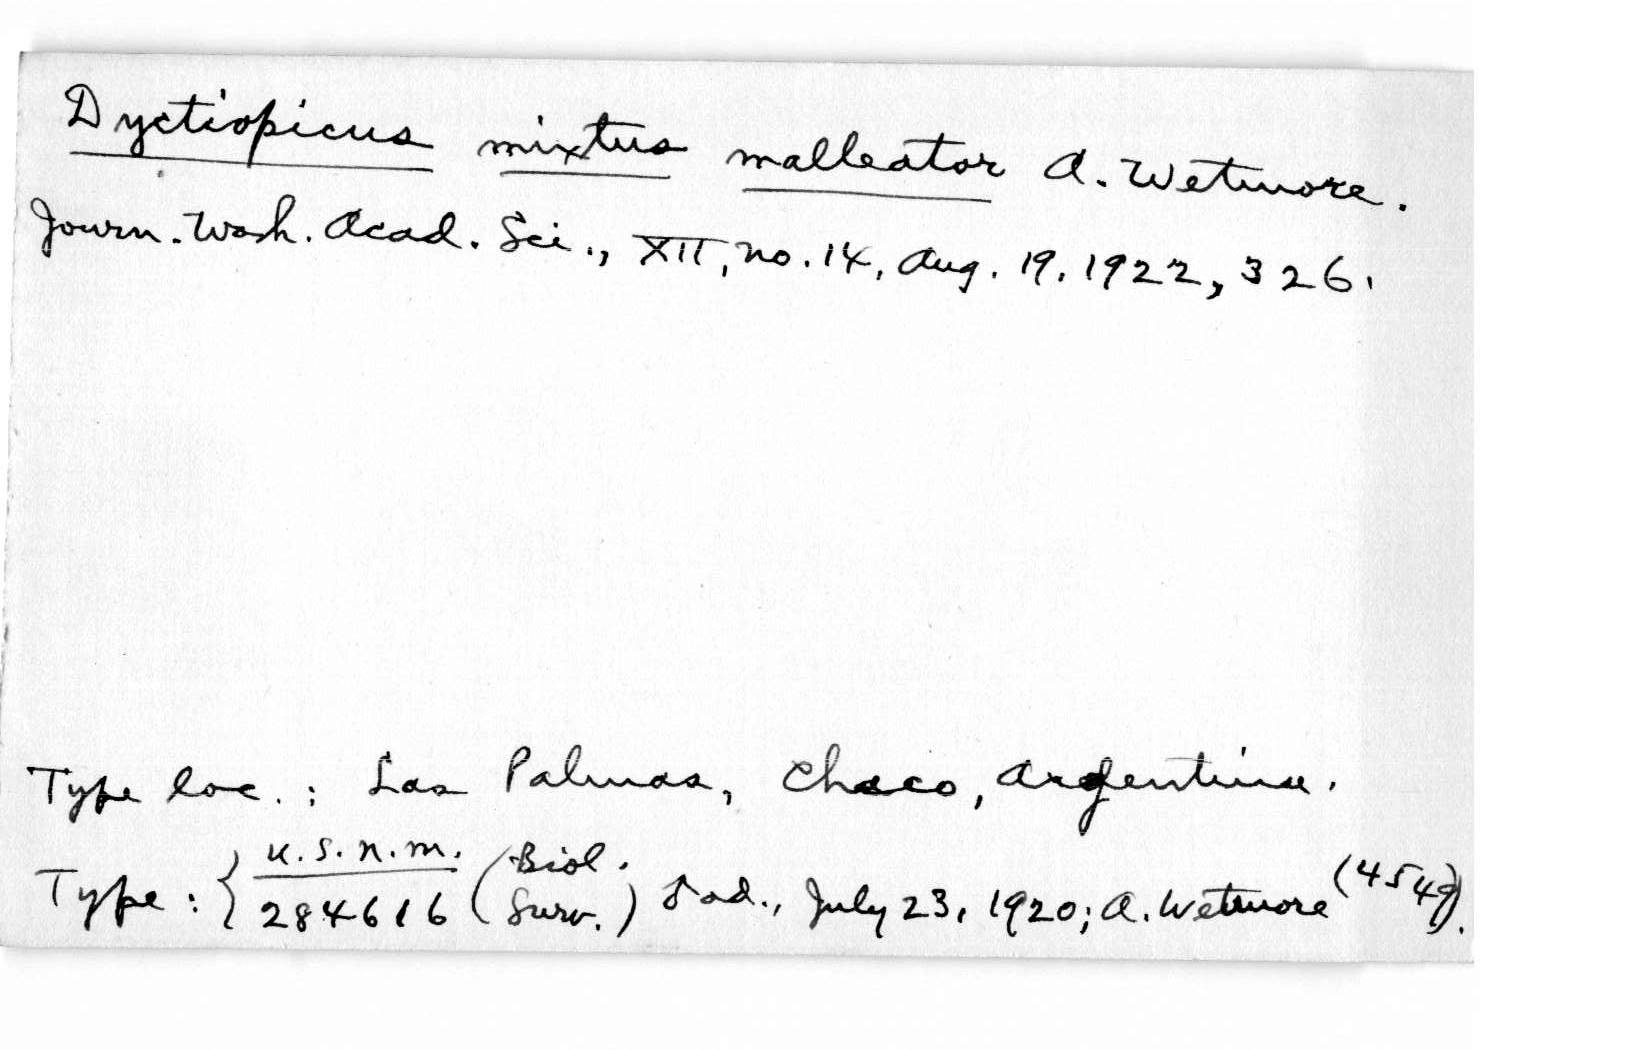 Dyctiopicus mixtus malleator A. Wetmore.
Journ. Wash. Acad. Sci., XII, no. 14, Aug. 19, 1922, 326.
Type loc.: Las Palmas, Chaco, Argentina.
Type: { U.S.N.M. 284616 (Biol. Surv.) ♂ ad., July 23, 1920; A. Wetmore (4549).